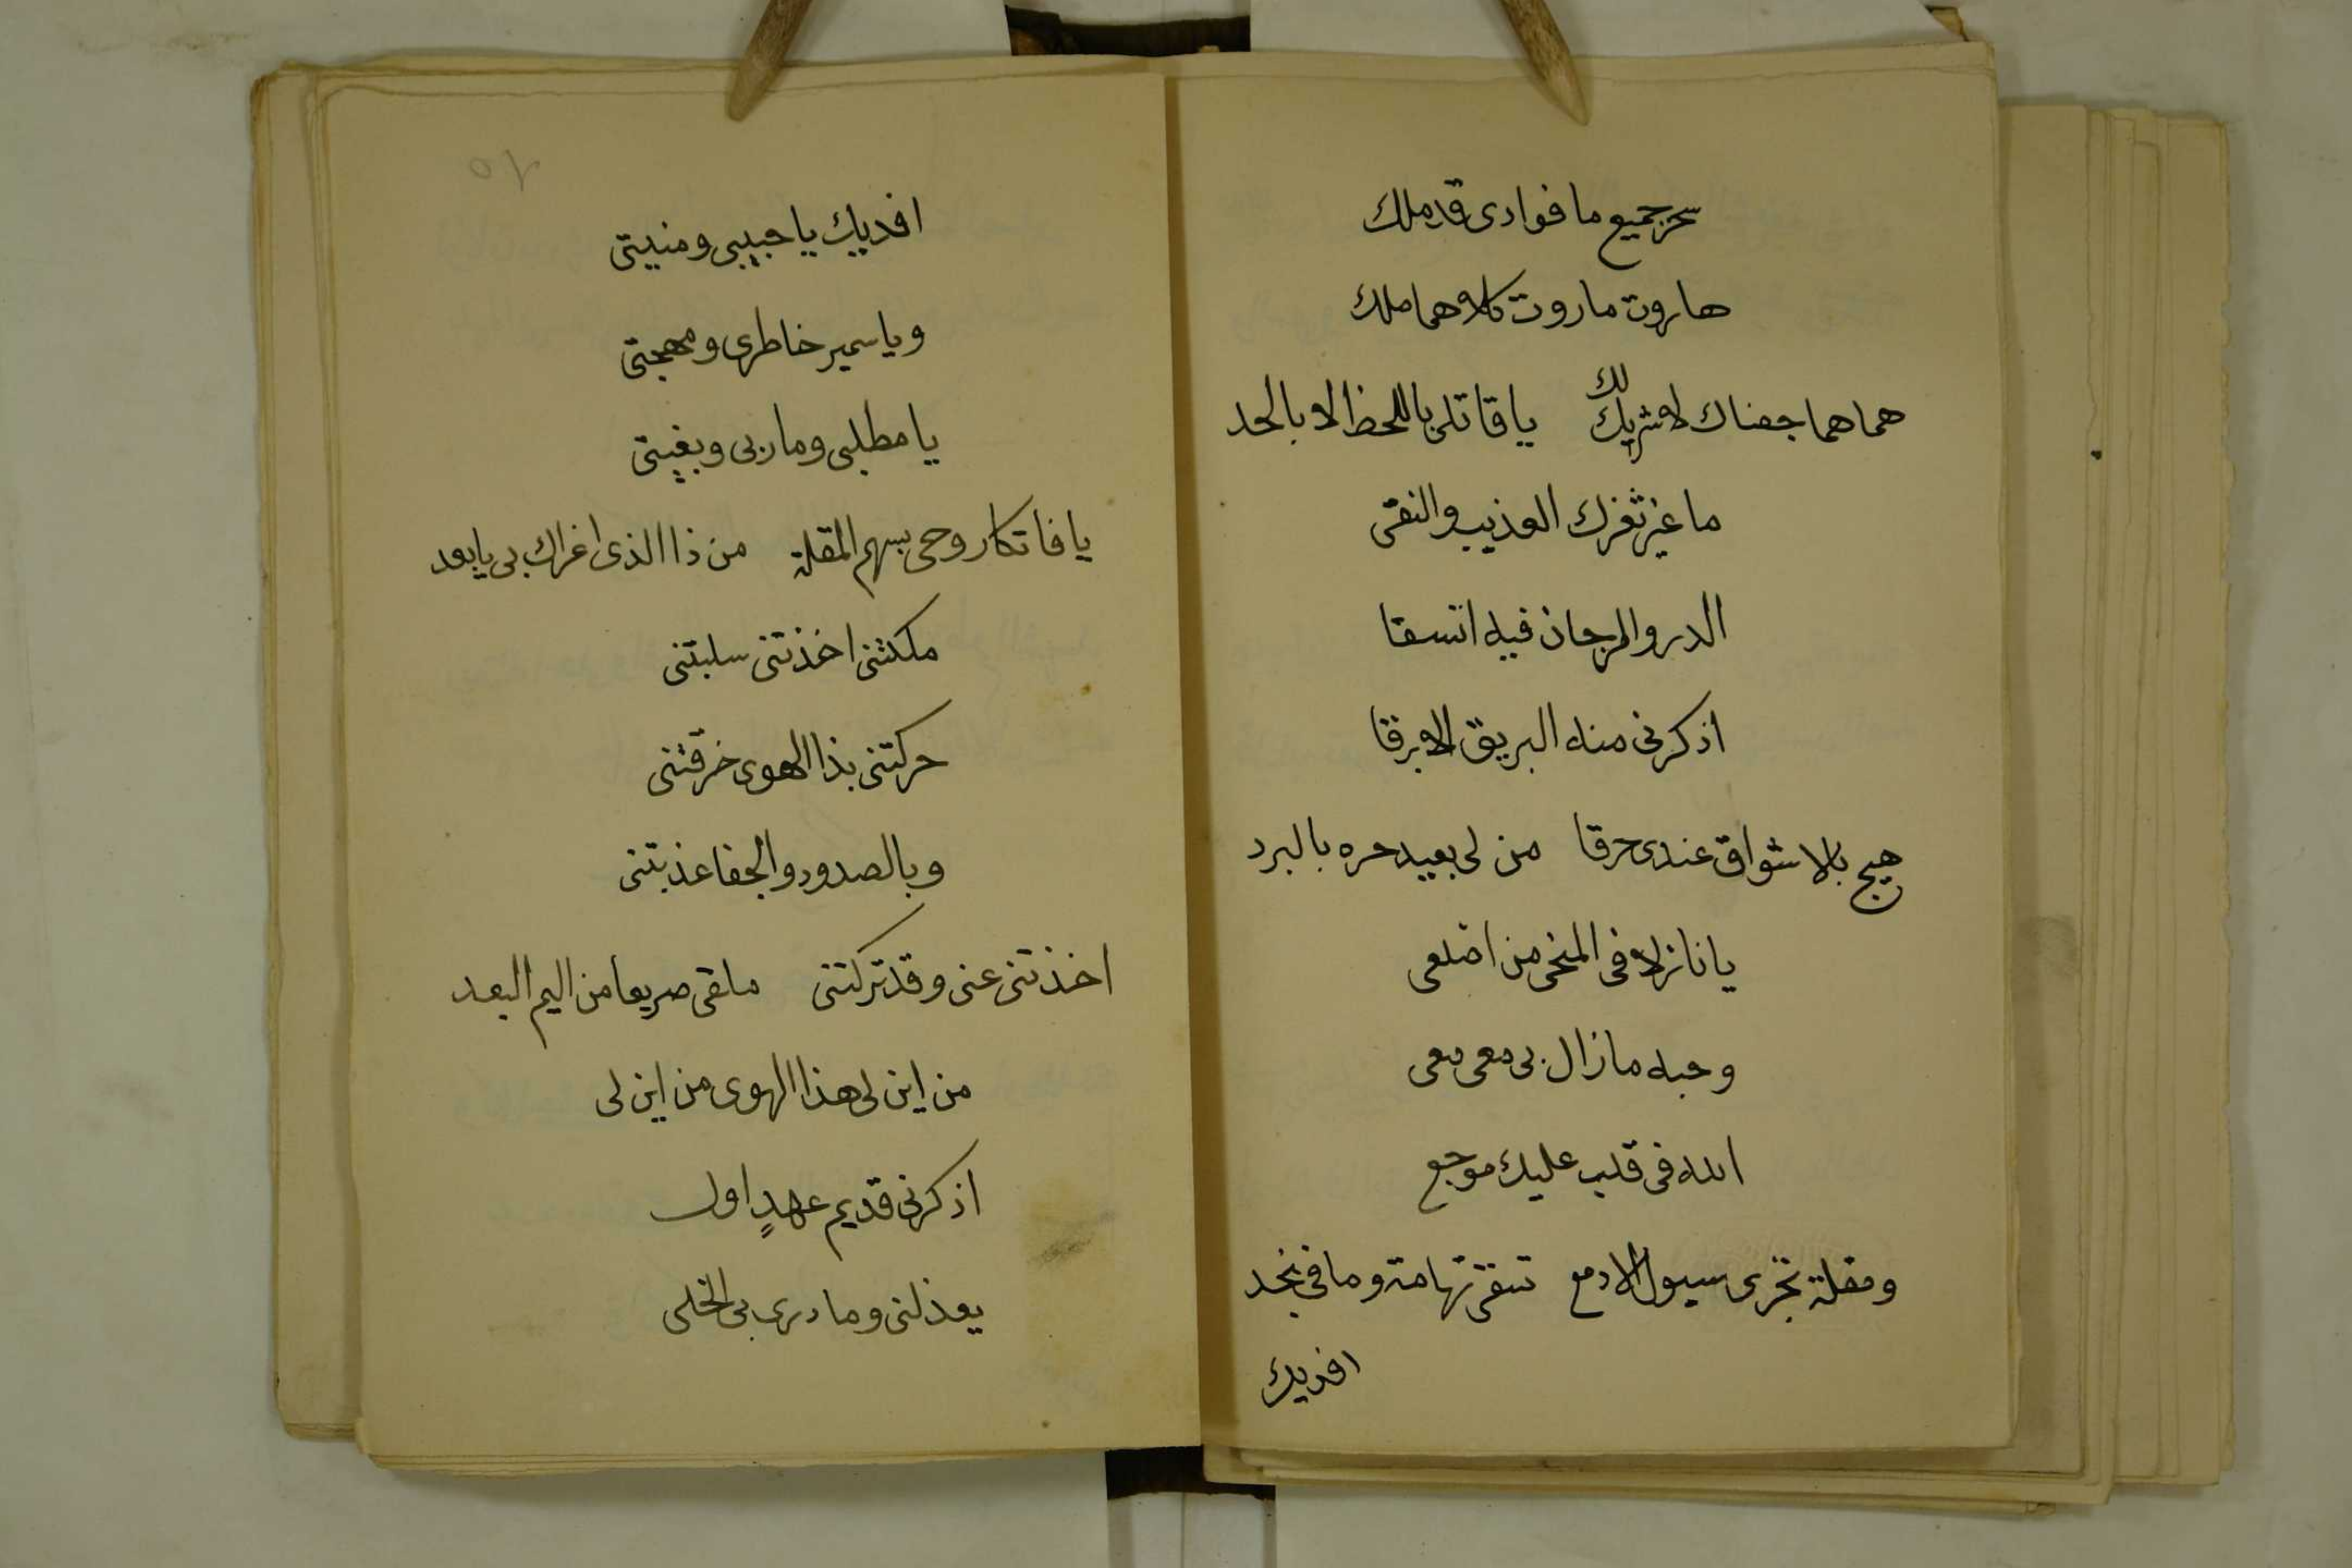 سحر جميع ما فوادى قد ملك
هاروت ماروت كلاهما ملك
هما هما جفناك لا شريك لك ياقاتلى باللحظ لا بالحد
ما غير ثغرك العذيب والنقى
الدر والمرجان فيه اتسقا
اذكرنى منه البريق الابرقا
هيج بالاشواق عندى حرقا من لى بعيد حره بالبرد
يا نازلا فى المنحنى من اضلعى
وحبه مازال بى معى معى
الله فى قلب عليك موجع
ومقلة تجرى سيول الادمع تسقى تهامة وما فى نجد
افديك
٥٢
افديك يا حبيبى ومنيتى
وياسمير خاطرى ومهجتى
يا مطلبى وماربى وبغيتى
يا فاتكا روحى بسهم المقلة من ذا الذى اغراك بى يابعد
ملكتنى اخذتنى سلبتنى
حركتنى بذا الهوى خرقتنى
وبالصدود والجفا عذبتنى
اخذتنى عنى وقد تركتنى ملقى صريعا من اليم البعد
من اين لى هذا الهوى من اين لى
اذكرنى قديم عهدٍ اول
يعذلنى وما درى بى الخلى